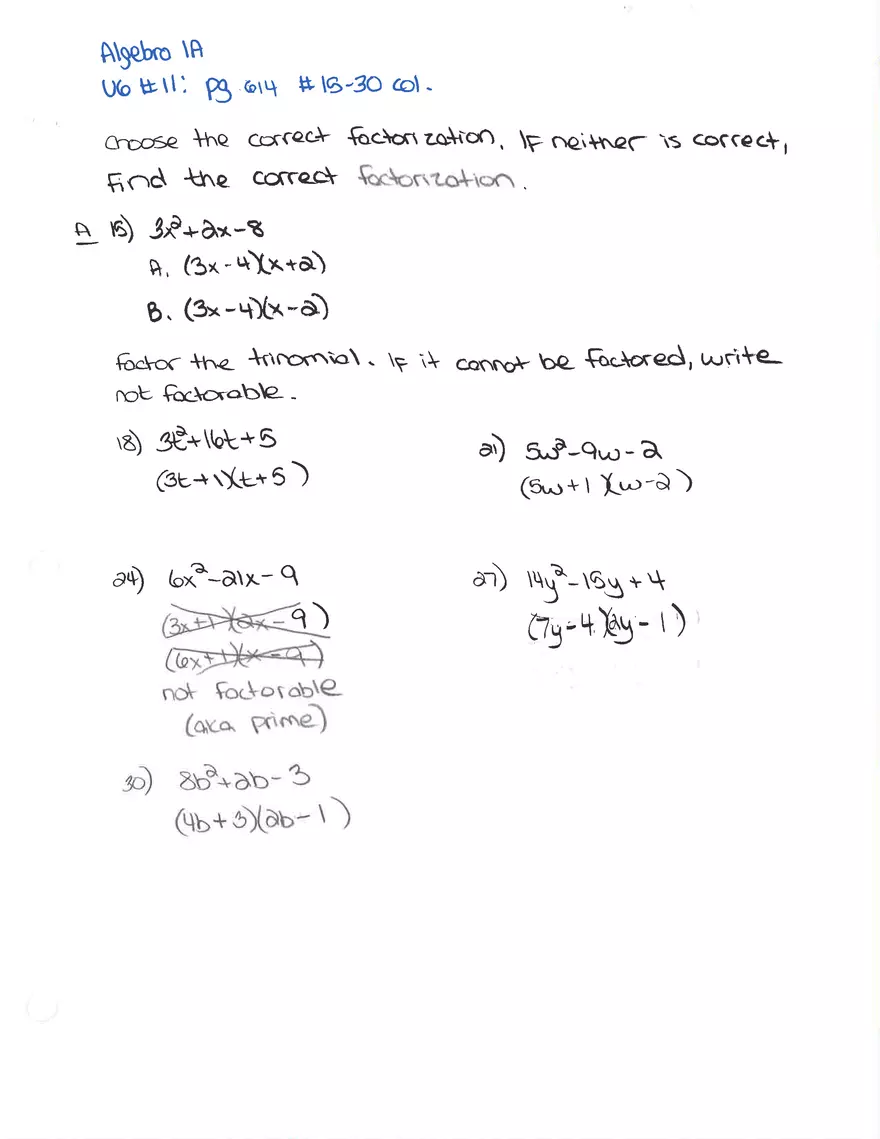 Algebra 1A
U6 #11: pg 614 #15-30 col.
Choose the correct factorization. If neither is correct,
find the correct factorization.
A 15) 3x²+2x-8
A. (3x-4)(x+2)
B. (3x-4)(x-2)
Factor the trinomial. If it cannot be factored, write
not factorable.
18) 3t²+16t+5
(3t+1)(t+5)
21) 5w²-9w-2
(5w+1)(w-2)
24) 6x²-21x-9
(3x+1)(2x-9)
(6x+1)(x-9)
not factorable
(aka prime)
27) 14y²-15y+4
(7y-4)(2y-1)
30) 8b²+2b-3
(4b+3)(2b-1)